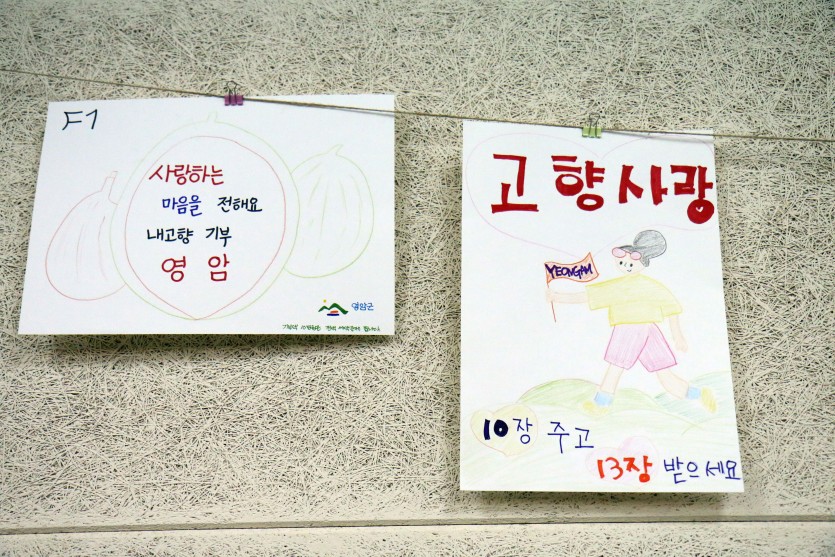 F1
사랑하는
마음을 전해요
내고향 기부
영암
영암군
고향사랑
YEONGAM
10장 주고
13장 받으세요